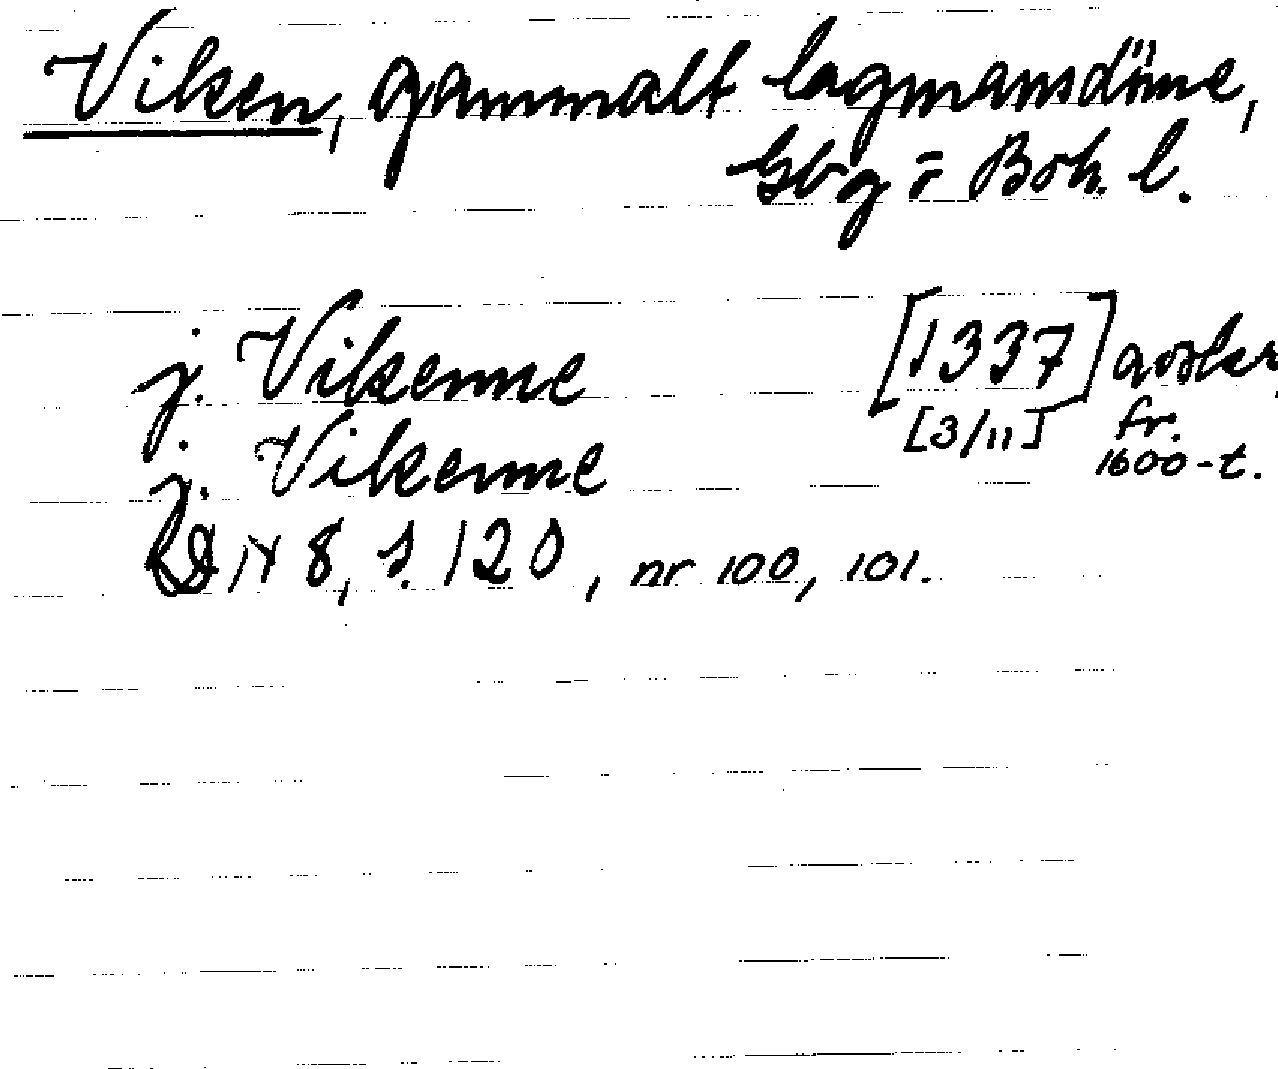 Viken, gammalt lagmansdöme,
Gbg o Boh. l.
j. Vikenne [1337] avskr.
[3/11] fr.
j. Vikenne 1600-t.
DN 8, s. 120, nr 100, 101.